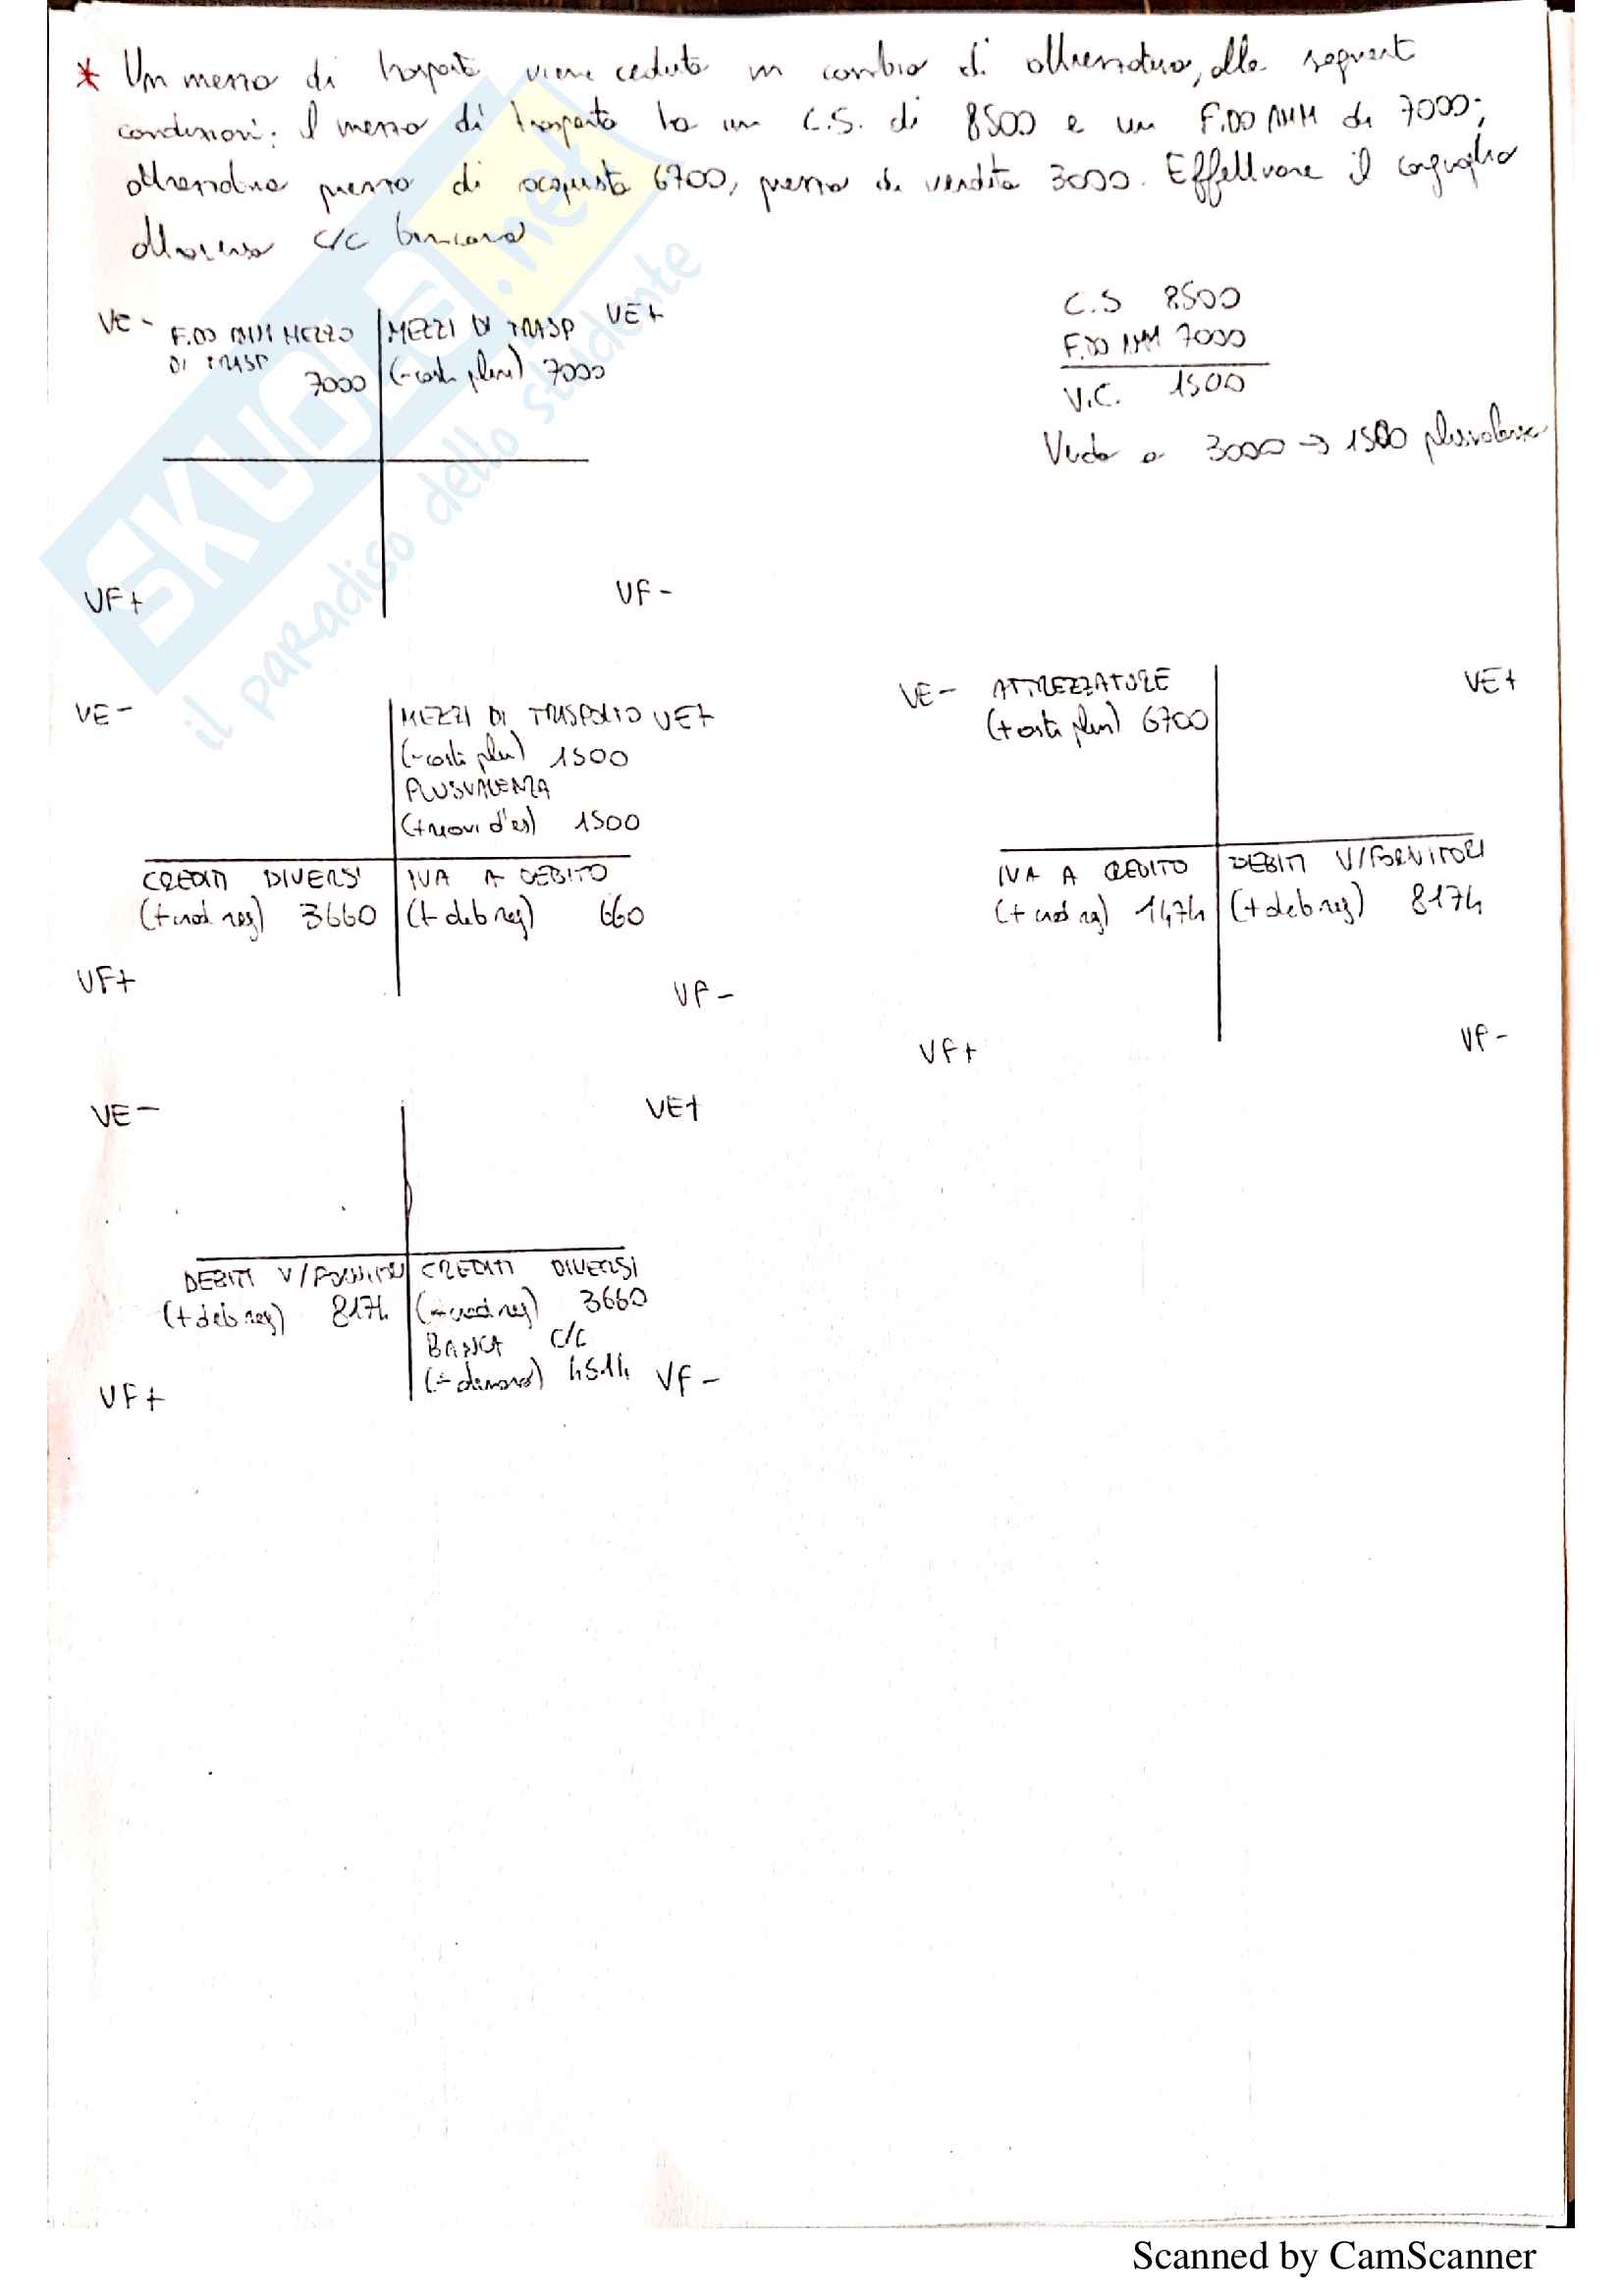 * Un mezzo di trasporto viene ceduto in cambio di attrezzatura, alle seguenti
condizioni: il mezzo di trasporto ha un C.S. di 8500 e un F.DO AMM di 7000;
attrezzatura prezzo di acquisto 6700, prezzo di vendita 3000. Effettuare il conguaglio
attraverso c/c bancario
C.S 8500
F.DO AMM 7000
V.C. 1500
Vendo a 3000 → 1500 plusvalenza
VE - F.DO AMM MEZZO MEZZI DI TRASP VE+
DI TRASP (-costi plur) 7000
7000
VF+ VF -
VE - MEZZI DI TRASPORTO VE+
(-costi plur) 1500
PLUSVALENZA
(+ricavi d'es) 1500
CREDITI DIVERSI IVA A DEBITO
(+cred reg) 3660 (+ deb reg) 660
VF+ VF -
VE - ATTREZZATURE VE+
(+costi plur) 6700
IVA A CREDITO DEBITI V/FORNITORI
(+ cred reg) 1474 (+deb reg) 8174
VF+ VF -
VE - VE+
DEBITI V/FORNITORI CREDITI DIVERSI
(+ deb reg) 8174 (-cred reg) 3660
BANCA c/c
(- denaro) 4514
VF+ VF -
SKUOLA.net
il paradiso dello studente
Scanned by CamScanner